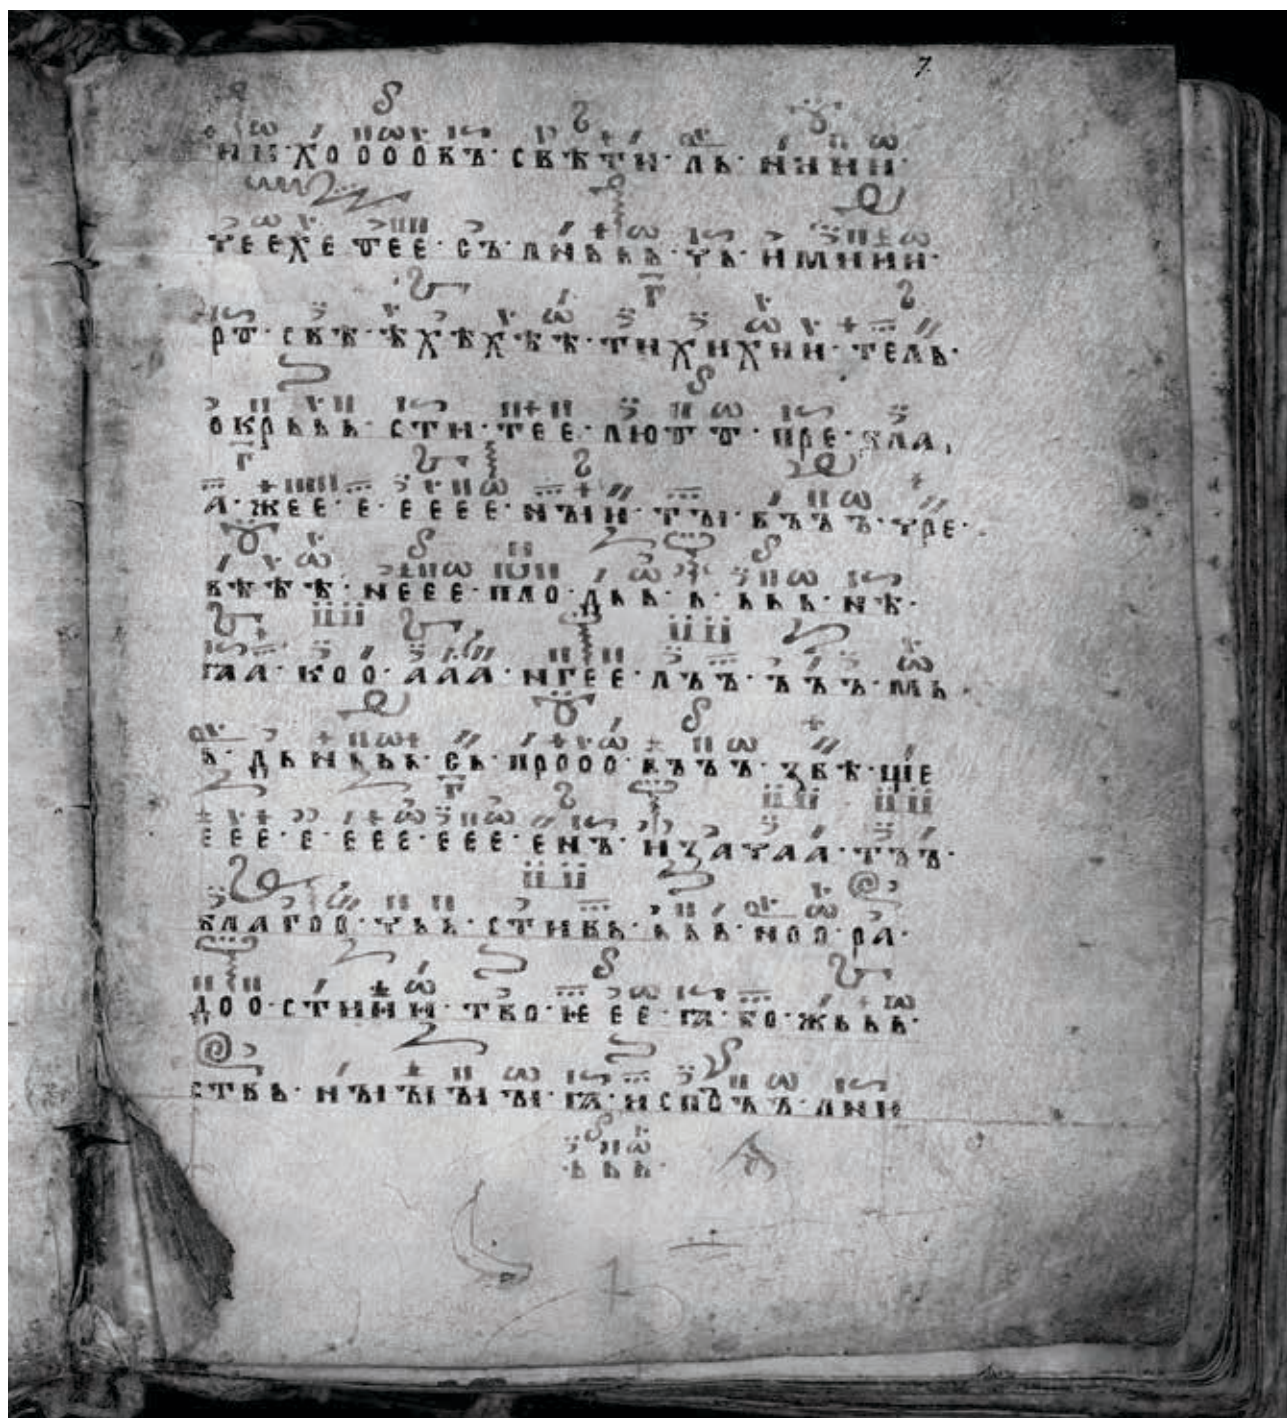 7
ни·хоооокъ·свѣти·ль·нини
теехетее·съ·лньььь·ть·имини·
ро·свѣ·ѣхѣхѣѣ·тихихии·тель·
окрььь·сти·тее·люто·пре·бла,
а·жее·е·ееее·нъıи·тъı·въъъ·тре·
бѣѣѣ·неее·пло·дьь·ь·ььь·нѣ·
гаа·коо·ааа·нгее·лъъ·ъъъ·мь·
ь·дьньь·сь·прооо·въъъ·ꙁвѣ·щıе
еее·е·еее·еее·енъ·иꙁатаа·тъъ·
благоо·тьь·стивь·ььь·ноо·ра·
доо·стини·тво·ѥее·ꙗ·бо·жььь·
ствь·нъıъıъıъı·ꙗ·исподъъ·лни
·ььь·